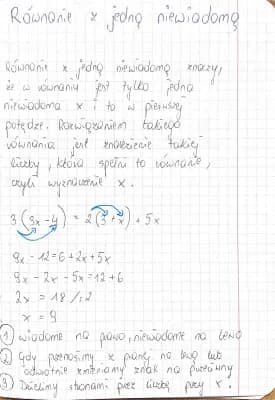 Równanie z jedną niewiadomą
Równanie z jedną niewiadomą znaczy,
że w równaniu jest tylko jedna
niewiadoma x i to w pierwszej
potędze. Rozwiązaniem takiego
równania jest znalezienie takiej
liczby, która spełni to równanie,
czyli wyznaczenie x.
3(3x-4) = 2(3+x) + 5x
9x - 12 = 6 + 2x + 5x
9x - 2x - 5x = 12 + 6
2x = 18 /:2
x = 9
1 wiadome na prawo, niewiadome na lewo
2 Gdy przenosimy z prawej na lewo lub
odwrotnie zmieniamy znak na przeciwny
3 Dzielimy stronami przez liczbę przy x.